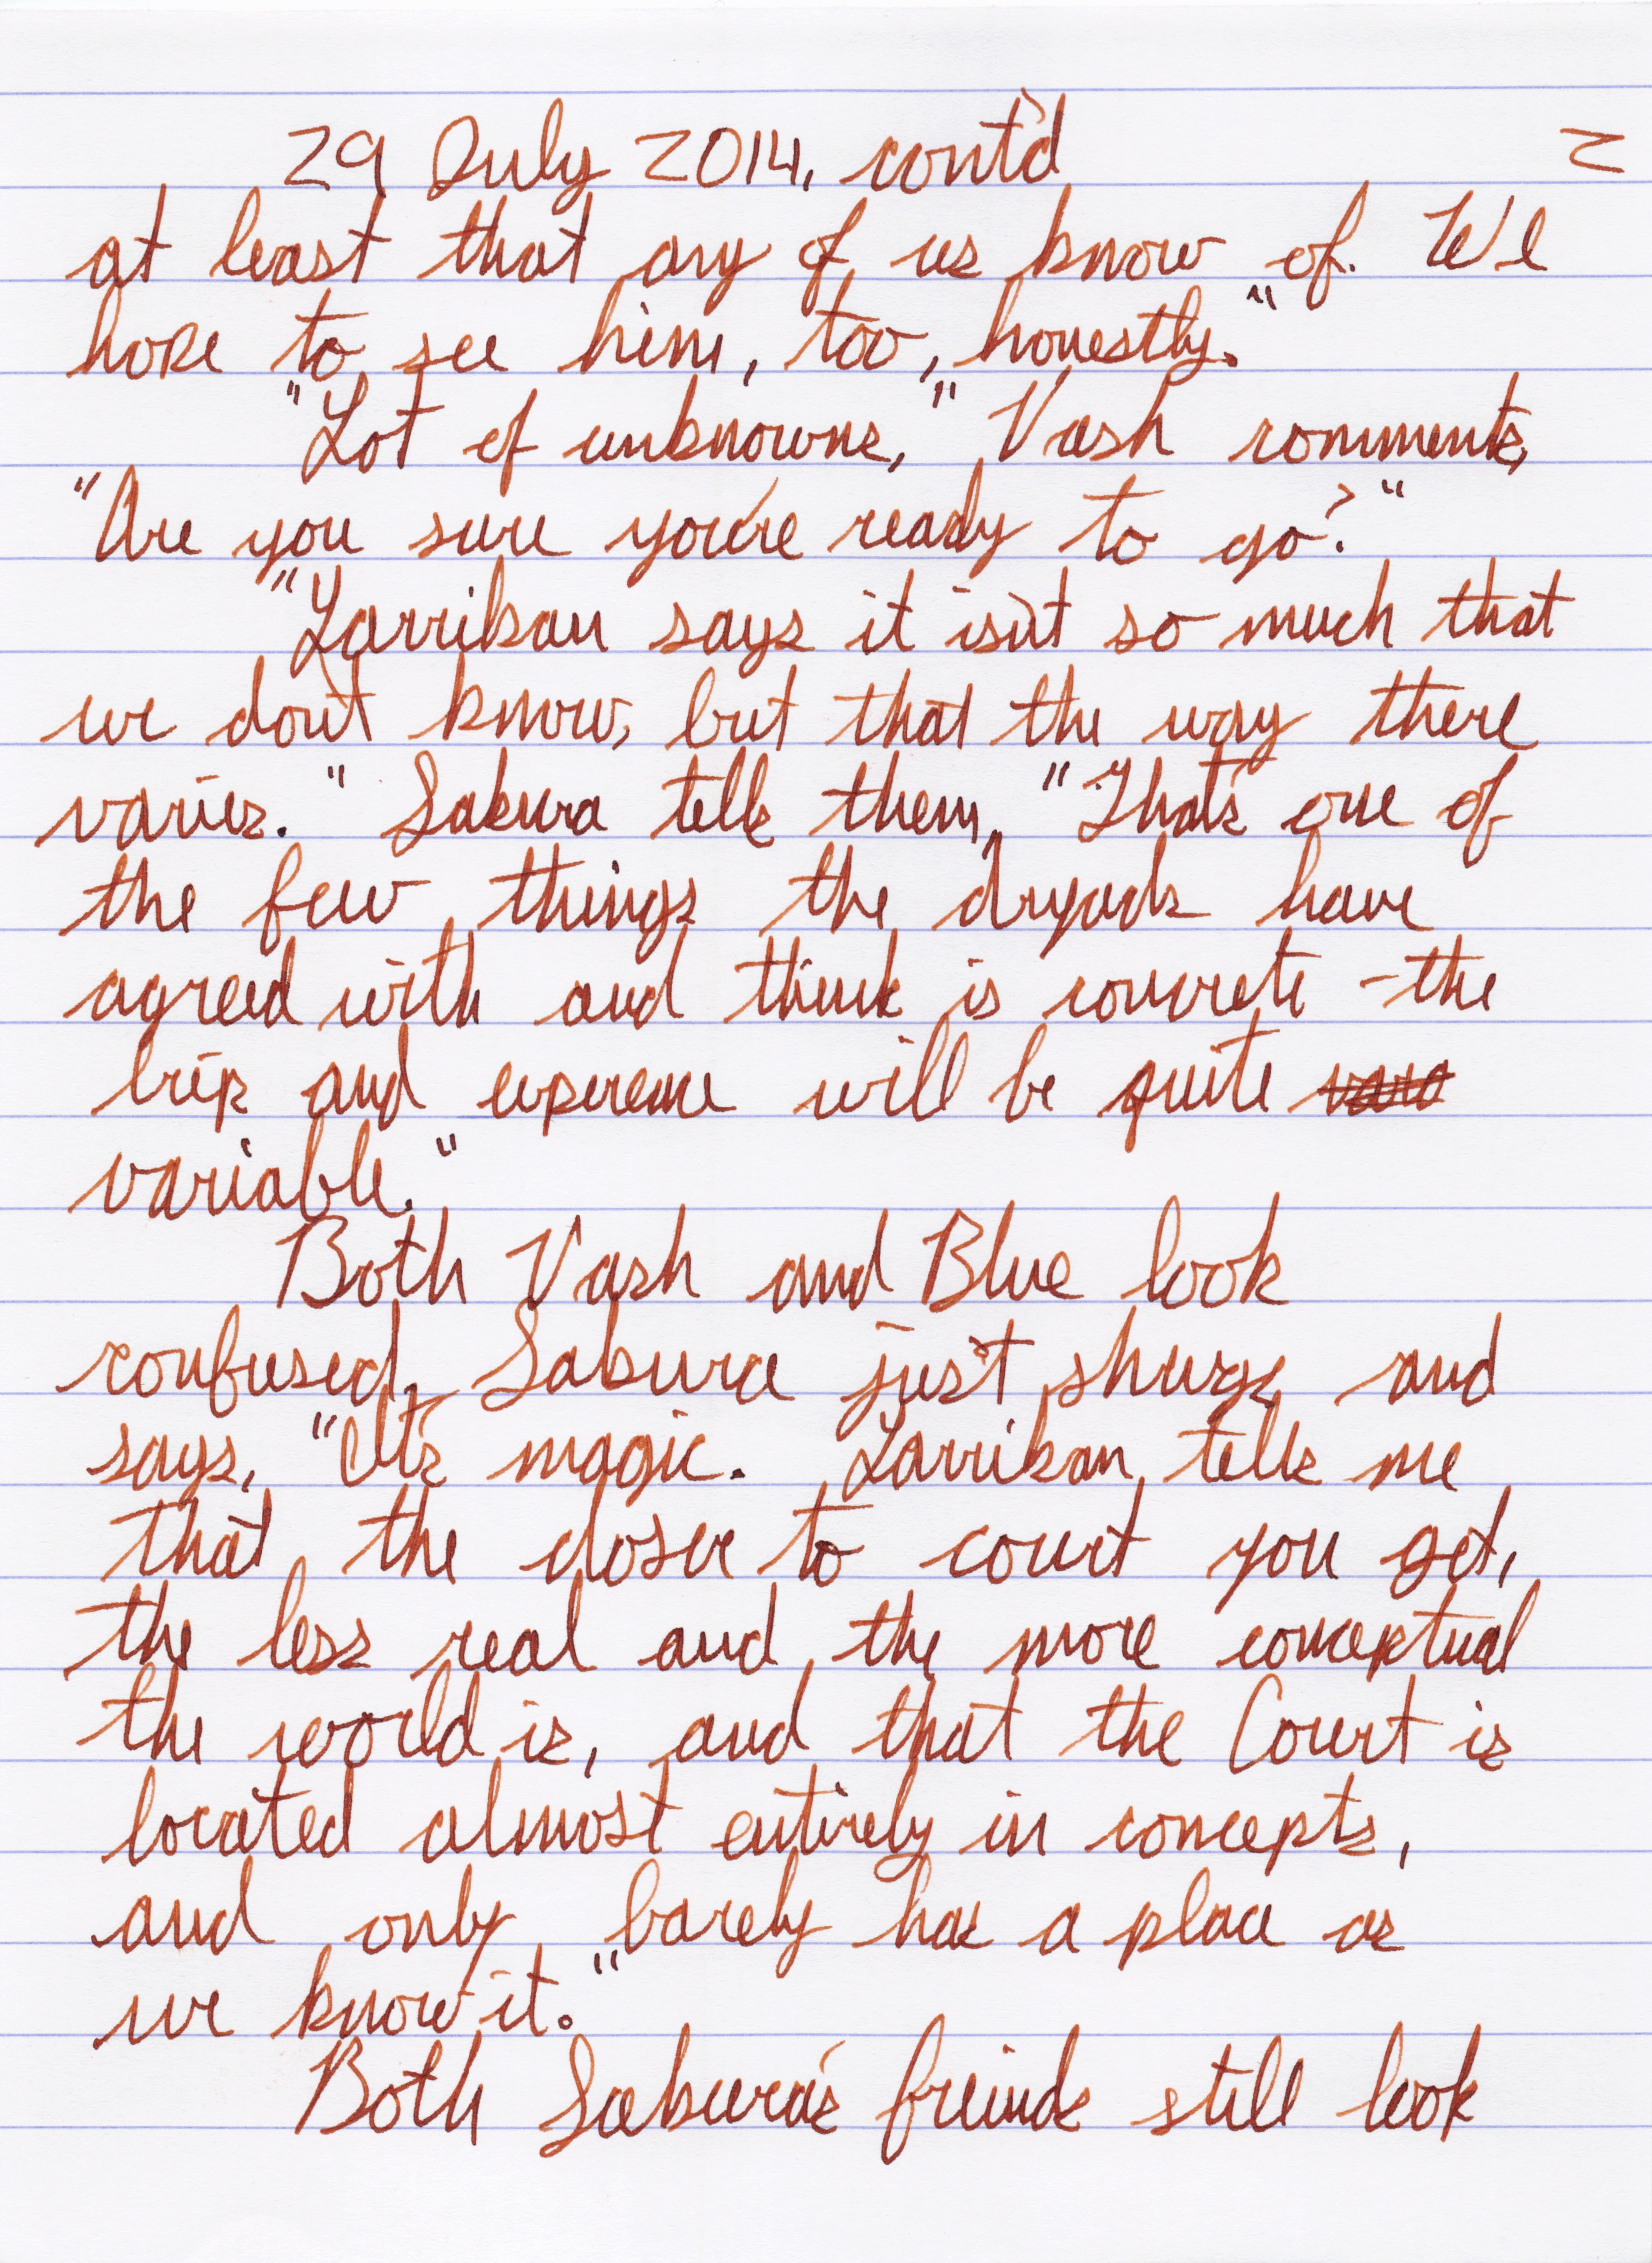 29 July 2014, cont'd 2
at least that any of us know of. We
hope to see him, too, honestly."
"Lot of unknowns," Vash comments,
"Are you sure you're ready to go?"
"Larrikan says it isn't so much that
we don't know, but that the way there
varies." Sakura tells them, "That's one of
the few things the dryads have
agreed with and think is concrete - the
trip and experence will be quite
variable."
Both Vash and Blue look
confused. Sakura just shurgs and
says, "It's magic. Larrikan tells me
that the closer to court you get,
the less real and the more conceptual
the world is, and that the Court is
located almost entirely in concepts,
and only barely has a place as
we know it."
Both Sakura's freinds still look